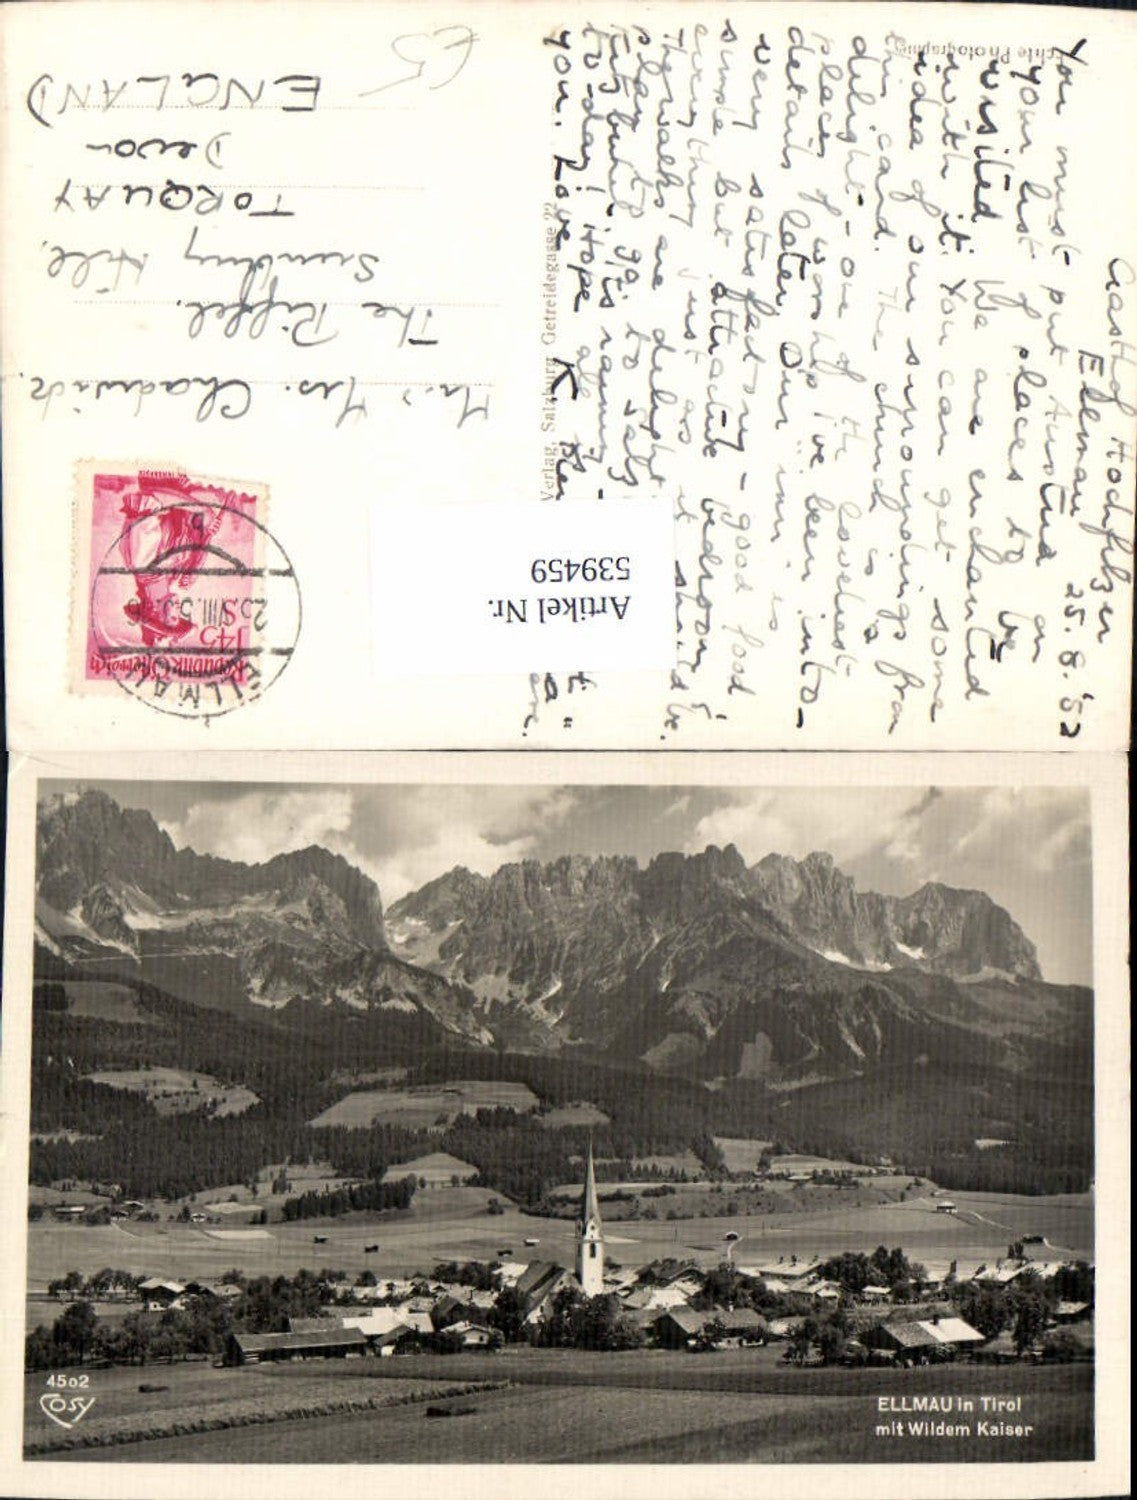 Gasthof Hochfilzer
Ellmau 25.8.'52
You must put Austria on
your list of places to be
visited. We are enchanted
with it. You can get some
idea of our surroundings from
this card. The church is a
delight - one of the loveliest
places of worship I've been into -
details later. Our inn is
very satisfactory - good food
simple but attractive bedrooms,
everything just as it should be.
The walks are delight
play to go to Salz
but it is raining -
to-day! Hope all
you. Love K
are.
Echte Photographie
Verlag, Salzburg Getreidegasse 22
£5
Mr & Mrs. Chadwick.
The Riffel,
Hill,
TORQUAY
Devon
ENGLAND
REPUBLIK ÖSTERREICH
S 1·45
ELLMAU
b
Artikel Nr.
539459
4502
COSY
ELLMAU in Tirol
mit Wildem Kaiser